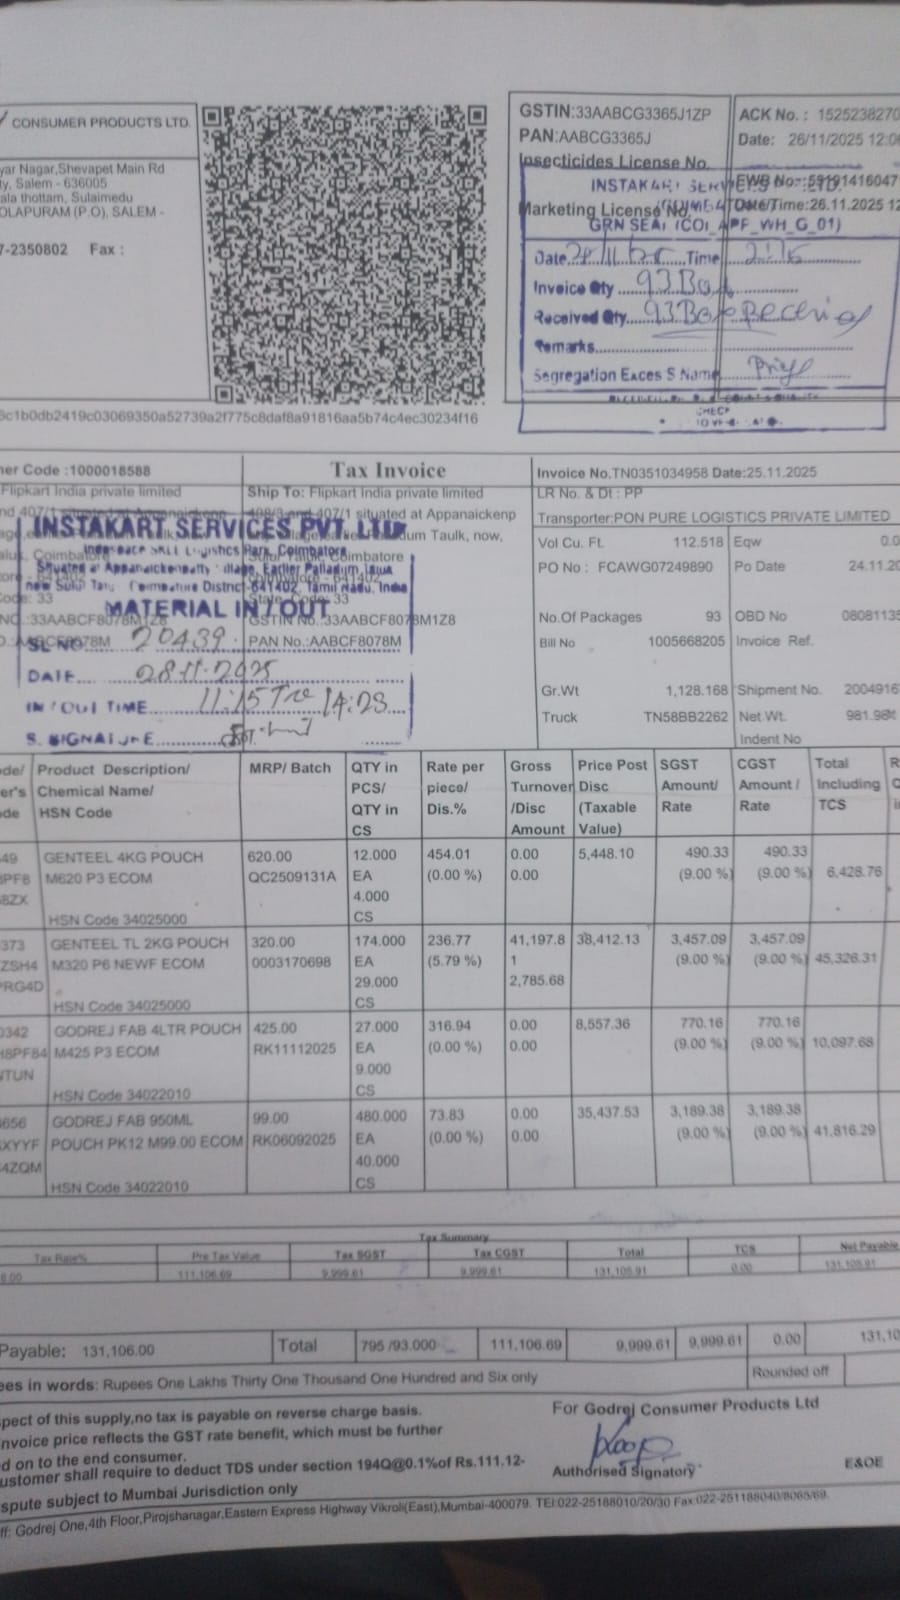 CONSUMER PRODUCTS LTD.
yar Nagar,Shevapet Main Rd
ty, Salem - 636005
ala thottam, Sulaimedu
OLAPURAM (P.O), SALEM -
7-2350802 Fax :
GSTIN:33AABCG3365J1ZP
PAN:AABCG3365J
Insecticides License No.
Marketing License No.
ACK No. : 1525238270
Date: 26/11/2025 12:0
EWB No.: 59191416047
Date/Time:26.11.2025 12
INSTAKART SERVICES
GRN SEAL (COI_APF_WH_G_01)
Date Time
Invoice Qty 93 Box
Received Qty 93 Box Received
Remarks
Segregation Exces S Name
CHECK
6c1b0db2419c03069350a52739a2f775c8daf8a91816aa5b74c4ec30234f16
ner Code :1000018588
Tax Invoice
Invoice No.TN0351034958 Date:25.11.2025
Flipkart India private limited
Ship To: Flipkart India private limited
LR No. & Dt : PP
nd 407/1 situated at Appanaickenp
408/3 and 407/1 situated at Appanaickenp
Transporter:PON PURE LOGISTICS PRIVATE LIMITED
INSTAKART SERVICES PVT. LTD
Indospace SKCL Logistics Park, Coimbatore
Situated at Appanaickenpatty Village, Earlier Palladum Taluk
now Sulur Taluk Coimbatore District-641402, Tamil Nadu, India
MATERIAL IN / OUT
SL NO 20439
DATE 28-11-2025
IN / OUT TIME 11:15 14:23
S. SIGNATURE
Code: 33
State Code: 33
NO.:33AABCF8078M1Z8
GSTIN No.:33AABCF8078M1Z8
PAN No.:AABCF8078M
Vol Cu. Ft. 112.518 Eqw 0.0
PO No : FCAWG07249890 Po Date 24.11.20
No.Of Packages 93 OBD No 08081135
Bill No 1005668205 Invoice Ref.
Gr.Wt 1,128.168 Shipment No. 2004916
Truck TN58BB2262 Net Wt. 981.98
Indent No
ode/ Product Description/ MRP/ Batch QTY in Rate per Gross Price Post SGST CGST Total R
er's Chemical Name/ PCS/ piece/ Turnover Disc Amount/ Amount / Including
ode HSN Code QTY in Dis.% /Disc (Taxable Rate Rate TCS
CS Amount Value)
49 GENTEEL 4KG POUCH 620.00 12.000 454.01 0.00 5,448.10 490.33 490.33
PF8 M620 P3 ECOM QC2509131A EA (0.00 %) 0.00 (9.00 %) (9.00 %) 6,428.76
8ZX 4.000
HSN Code 34025000 CS
373 GENTEEL TL 2KG POUCH 320.00 174.000 236.77 41,197.8 38,412.13 3,457.09 3,457.09
ZSH4 M320 P6 NEWF ECOM 0003170698 EA (5.79 %) 1 (9.00 %) (9.00 %) 45,326.31
PRG4D 29.000 2,785.68
HSN Code 34025000 CS
0342 GODREJ FAB 4LTR POUCH 425.00 27.000 316.94 0.00 8,557.36 770.16 770.16
H8PF84 M425 P3 ECOM RK11112025 EA (0.00 %) 0.00 (9.00 %) (9.00 %) 10,097.68
NTUN 9.000
HSN Code 34022010 CS
656 GODREJ FAB 950ML 99.00 480.000 73.83 0.00 35,437.53 3,189.38 3,189.38
XYYF POUCH PK12 M99.00 ECOM RK06092025 EA (0.00 %) 0.00 (9.00 %) (9.00 %) 41,816.29
4ZQM 40.000
HSN Code 34022010 CS
Tax Summary
Tax Rate% Pre Tax Value Tax SGST Tax CGST Total TCS Net Payable
8.00 111,106.69 9,999.61 9,999.61 131,105.91 0.00 131,105.91
Payable: 131,106.00 Total 795 /93.000 111,106.69 9,999.61 9,999.61 0.00 131,10
ees in words: Rupees One Lakhs Thirty One Thousand One Hundred and Six only Rounded off
spect of this supply,no tax is payable on reverse charge basis.
nvoice price reflects the GST rate benefit, which must be further
d on to the end consumer.
ustomer shall require to deduct TDS under section 194Q@0.1%of Rs.111.12-
spute subject to Mumbai Jurisdiction only
For Godrej Consumer Products Ltd
Authorised Signatory
E&OE
ff: Godrej One,4th Floor,Pirojshanagar,Eastern Express Highway Vikroli(East),Mumbai-400079. TEl:022-25188010/20/30 Fax:022-251188040/8065/69.